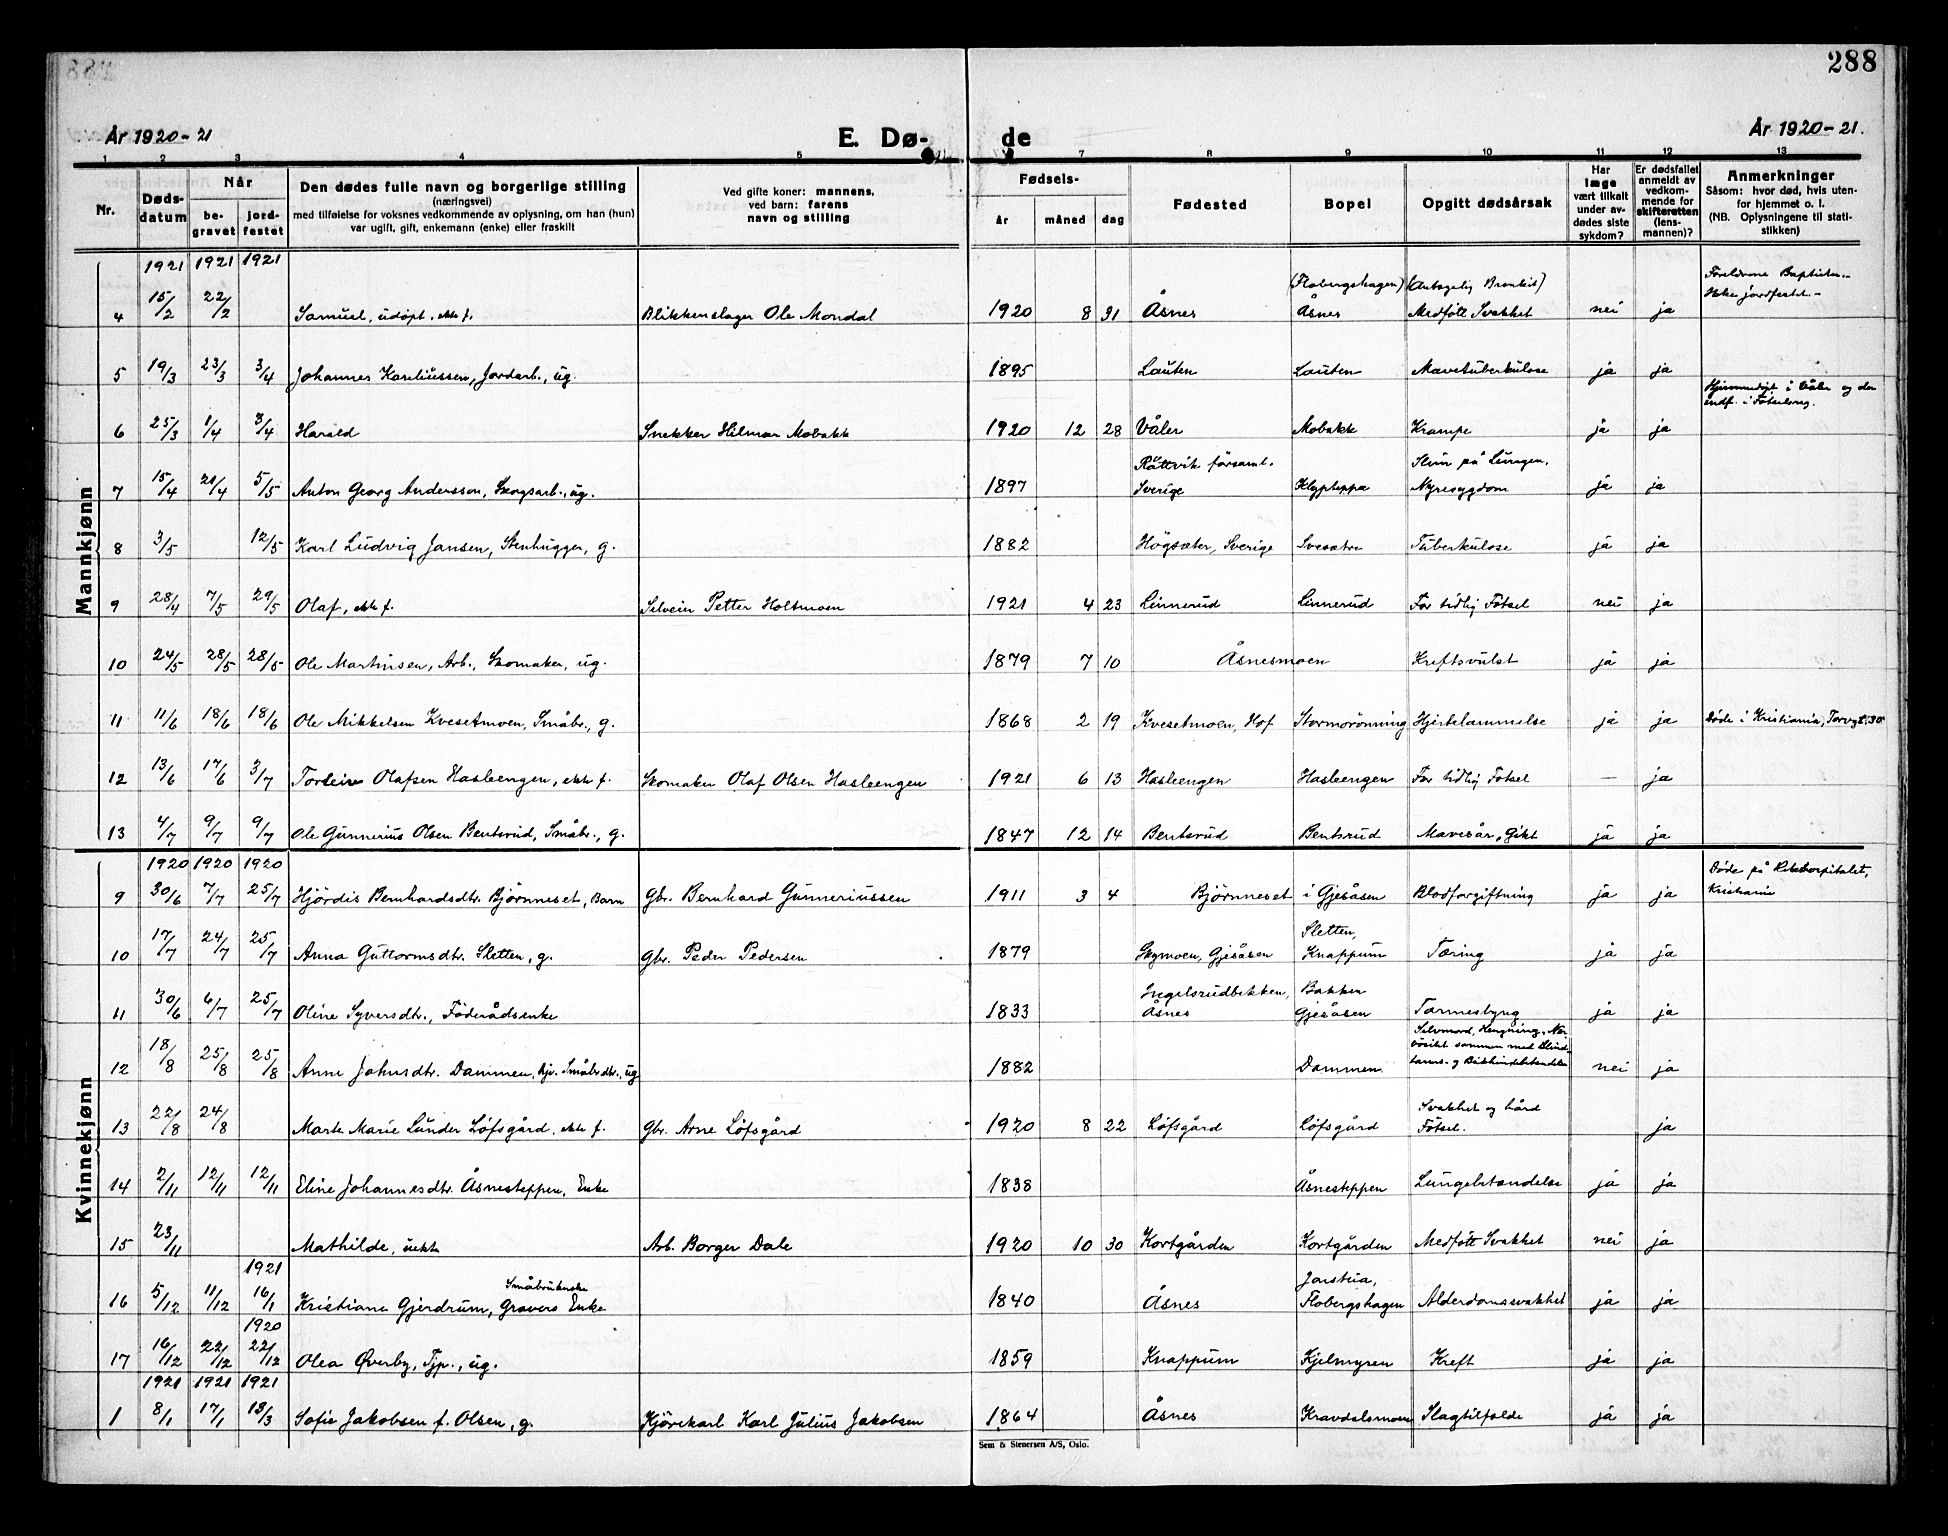 288
År 1920-21
E. Dø-
de
År 1920-21.
1 2 3 4 5 7 8 9 10 11 12 13
Nr.
Døds-
datum
Når
be-
gravet
jord-
festet
Den dødes fulle navn og borgerlige stilling
(næringsvei)
med tilføielse for voksnes vedkommende av oplysning, om han (hun)
var ugift, gift, enkemann (enke) eller fraskilt
Ved gifte koner: mannens,
ved barn: farens
navn og stilling
Fødsels-
år
måned
dag
Fødested
Bopel
Opgitt dødsårsak
Har
læge
vært tilkalt
under av-
dødes siste
sykdom?
Er dødsfallet
anmeldt av
vedkom-
mende for
skifteretten
(lens-
mannen)?
Anmerkninger
Såsom: hvor død, hvis uten-
for hjemmet o. l.
(NB. Oplysningene til stati-
stikken)
Mannkjønn
1921 1921 1921
(Flobergshagen) (Antagelig Bronkit) Foreldrene Baptister.-
Ikke jordfestet.-
4 15/2 22/2 Samuel, udöpt, ekte f. Blikkenslager Ole Mondal 1920 8 31 Åsnes Åsnes Medfött Svakhet nei ja
5 19/3 23/3 3/4 Johannes Kareliussen, Jordarb., ug. 1895 Löuten Löuten Mavetuberkulose ja ja
Hjemmedöpt i Våler og der
indf. i Fötselsreg.
6 25/3 1/4 3/4 Harald Snekker Hilmar Mobakk 1920 12 28 Våler Mobakk Krampe ja ja
Rättvik församl. Slim på Lungen,
7 15/4 21/4 5/5 Anton Georg Andersson, Skogsarb., ug. 1897 Sverige Klypteppa Nyresygdom ja ja
8 3/5 12/5 Karl Ludvig Jansen, Stenhugger, g. 1882 Högsæter, Sverige Svesætre Tuberkulose ja ja
9 28/4 7/5 29/5 Olaf, ekte f. Selveier Petter Holtmoen 1921 4 23 Linnerud Linnerud For tidlig Fötsel nei ja
10 24/5 28/5 28/5 Ole Martinsen, Arb., Skomaker, ug. 1879 7 10 Åsnesmoen Kreftsvulst ja ja
11 11/6 18/6 18/6 Ole Mikkelsen Kvesetmoen, Småbr., g. 1868 2 19 Kvesetmoen, Hof Stormorönning Hjertelammelse ja ja Döde i Kristiania, Torvgt. 30
12 13/6 17/6 3/7 Torleiv Olafsen Hasleengen, ekte f. Skomaker Olaf Olsen Hasleengen 1921 6 13 Hasleengen Hasleengen For tidlig Fötsel — ja
13 4/7 9/7 9/7 Ole Gunnerius Olsen Bentsrud, Småbr., g. 1847 12 14 Bentsrud Bentsrud Mavesår, Gikt ja ja
Kvinnekjønn
1920 1920 1920
Döde på Rikshospitalet,
9 30/6 7/7 25/7 Hjördis Bernhardsdtr. Björneset, Barn Gbr. Bernhard Gunneriussen 1911 3 4 Björneset i Gjesåsen Blodforgiftning ja ja Kristiania
Sletten,
10 17/7 24/7 25/7 Anna Guttormsdtr. Sletten, g. Gbr. Peder Pedersen 1879 Skymoen, Gjesåsen Knappum Tæring ja ja
Ingelsrudbekken, Bakken
11 30/6 6/7 25/7 Oline Syversdtr., Föderådsenke 1833 Åsnes Gjesåsen Tarmeslyng ja ja
Selvmord, Hengning, Ner-
vösitet sammen med Blind-
12 18/8 25/8 25/8 Anne Johnsdtr. Dammen, Hj. Småbrdtr., ug 1882 Dammen tarms- og Bukhindebetændelse nei ja
Svakhet og hård
13 22/8 24/8 Marte Marie Lunder Löfsgård, ekte f. Gbr. Arne Löfsgård 1920 8 22 Löfsgård Löfsgård Fötsel. ja
14 2/11 12/11 12/11 Eline Johannesdtr. Åsnesteppen, Enke 1838 Åsnesteppen Lungebetændelse ja ja
15 23/11 Mathilde, uekte Arb. Borger Dale 1920 10 30 Kortgården Kortgården Medfött Svakhet nei ja
1921
Småbrukerske Jonstua,
16 5/12 11/12 16/1 Kristiane Gjerdrum, Gravers Enke 1840 Åsnes Flobergshagen Alderdomssvakhet ja ja
1920
17 16/12 22/12 22/12 Olea Øverby, Tjp., ug. 1859 Knappum Kjelmyren Kreft ja ja
1921 1921 1921
1 8/1 17/1 13/3 Sofie Jakobsen f. Olsen, g. Kjörekarl Karl Julius Jakobsen 1864 Åsnes Kravdalsmoen Slagtilfælde ja ja
Sem & Stenersen A/S, Oslo.